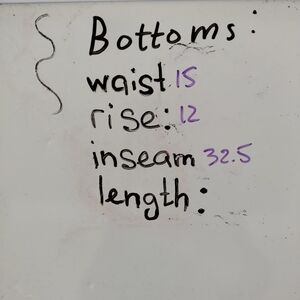 Bottoms:
waist 15
rise: 12
inseam 32.5
length: